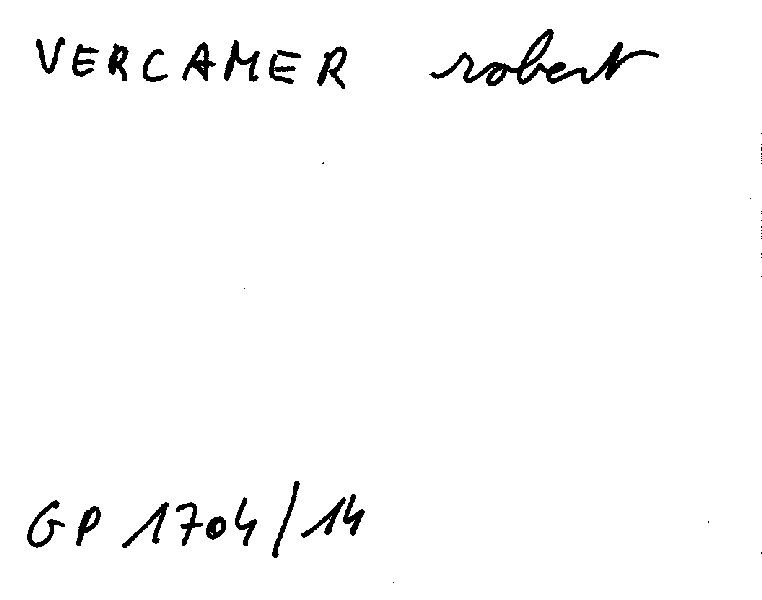 VERCAMER robert
GP 1704/14